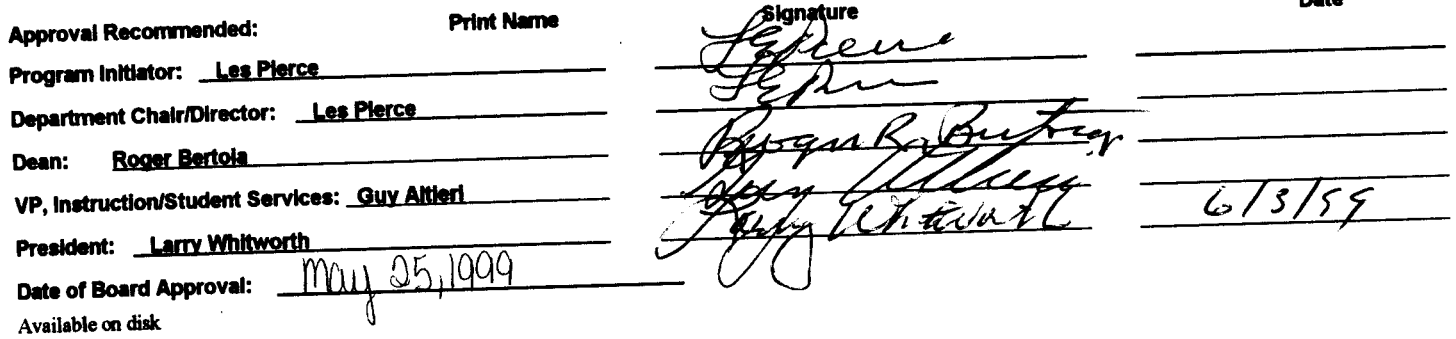 Approval Recommended: Print Name Signature Date
Program Initiator: Les Pierce
Department Chair/Director: Les Pierce
Dean: Roger Bertoia
VP, Instruction/Student Services: Guy Altieri
President: Larry Whitworth Larry Whitworth 6/3/99
Date of Board Approval: May 25, 1999
Available on disk